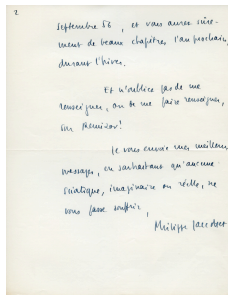 2
septembre 56, et vous aurez sûre-
ment de beaux chapitres l'an prochain,
durant l'hiver.
Et n'oubliez pas de me
renseigner, ou de me faire renseigner,
sur Remizov!
Je vous envoie mes meilleurs
messages, en souhaitant qu'aucune
sciatique, imaginaire ou réelle, ne
vous fasse souffrir,
Philippe Jaccottet